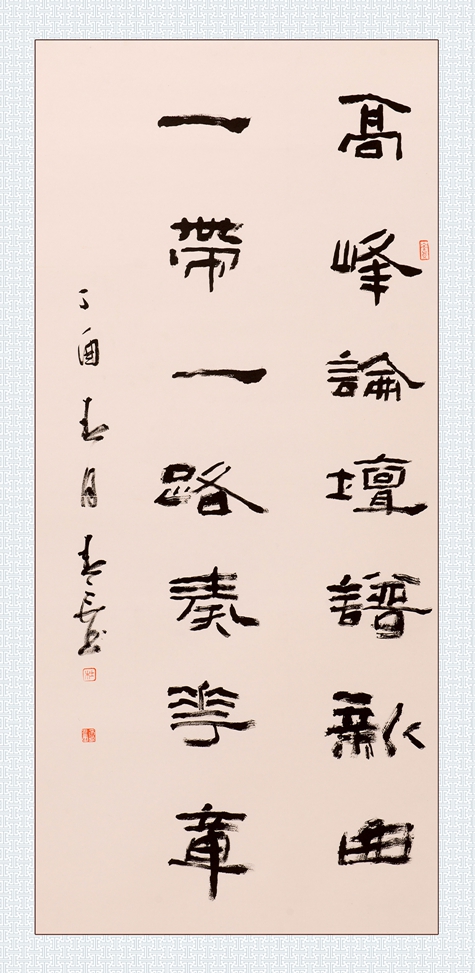 高峰論壇譜新曲
一帶一路奏華章
丁酉春月